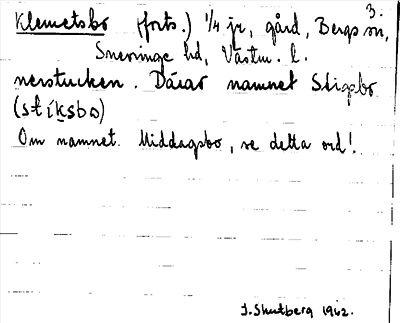 3.
Klemetsbo (forts.) 1/4 jr, gård, Bergs sn,
Snevringe hd, Västm. l.
nerstucken. Därav namnet Stigsbo
(stíksbo)
Om namnet Middagsbo, se detta ord!
J. Skutberg 1962.